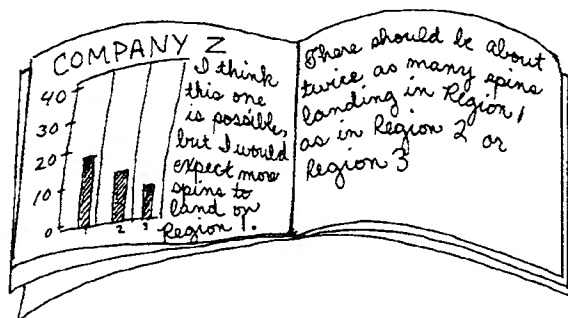 COMPANY Z
40
30
20
10
0
1 2 3
I think
this one
is possible,
but I would
expect more
spins to
land on
Region 1.
There should be about
twice as many spins
landing in Region 1
as in Region 2 or
Region 3